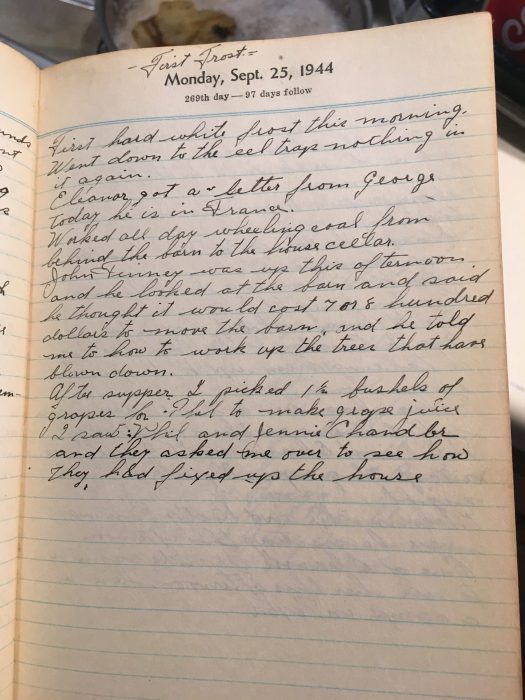 - First Frost -
Monday, Sept. 25, 1944
269th day — 97 days follow
First hard white frost this morning.
Went down to the eel trap nothing in
it again.
Eleanor got a letter from George
today he is in France.
Worked all day wheeling coal from
behind the barn to the house cellar.
John Finney was up this afternoon
and he looked at the barn and said
he thought it would cost 7 or 8 hundred
dollars to move the barn, and he told
me to how to work up the trees that have
blown down.
After supper I picked 1½ bushels of
grapes for Phil to make grape juice
I saw Phil and Jennie Chandler
and they asked me over to see how
they had fixed up the house